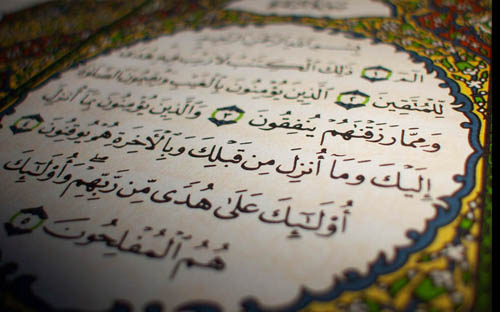 بِسْمِ ٱللَّهِ ٱلرَّحْمَٰنِ ٱلرَّحِيمِ
الٓمٓ ١ ذَٰلِكَ ٱلْكِتَٰبُ لَا رَيْبَ فِيهِ هُدًى
لِّلْمُتَّقِينَ ٢ ٱلَّذِينَ يُؤْمِنُونَ بِٱلْغَيْبِ وَيُقِيمُونَ ٱلصَّلَوٰةَ
وَمِمَّا رَزَقْنَٰهُمْ يُنفِقُونَ ٣ وَٱلَّذِينَ يُؤْمِنُونَ بِمَآ أُنزِلَ
إِلَيْكَ وَمَآ أُنزِلَ مِن قَبْلِكَ وَبِٱلْءَاخِرَةِ هُمْ يُوقِنُونَ ٤
أُو۟لَٰٓئِكَ عَلَىٰ هُدًى مِّن رَّبِّهِمْ ۖ وَأُو۟لَٰٓئِكَ
هُمُ ٱلْمُفْلِحُونَ ٥